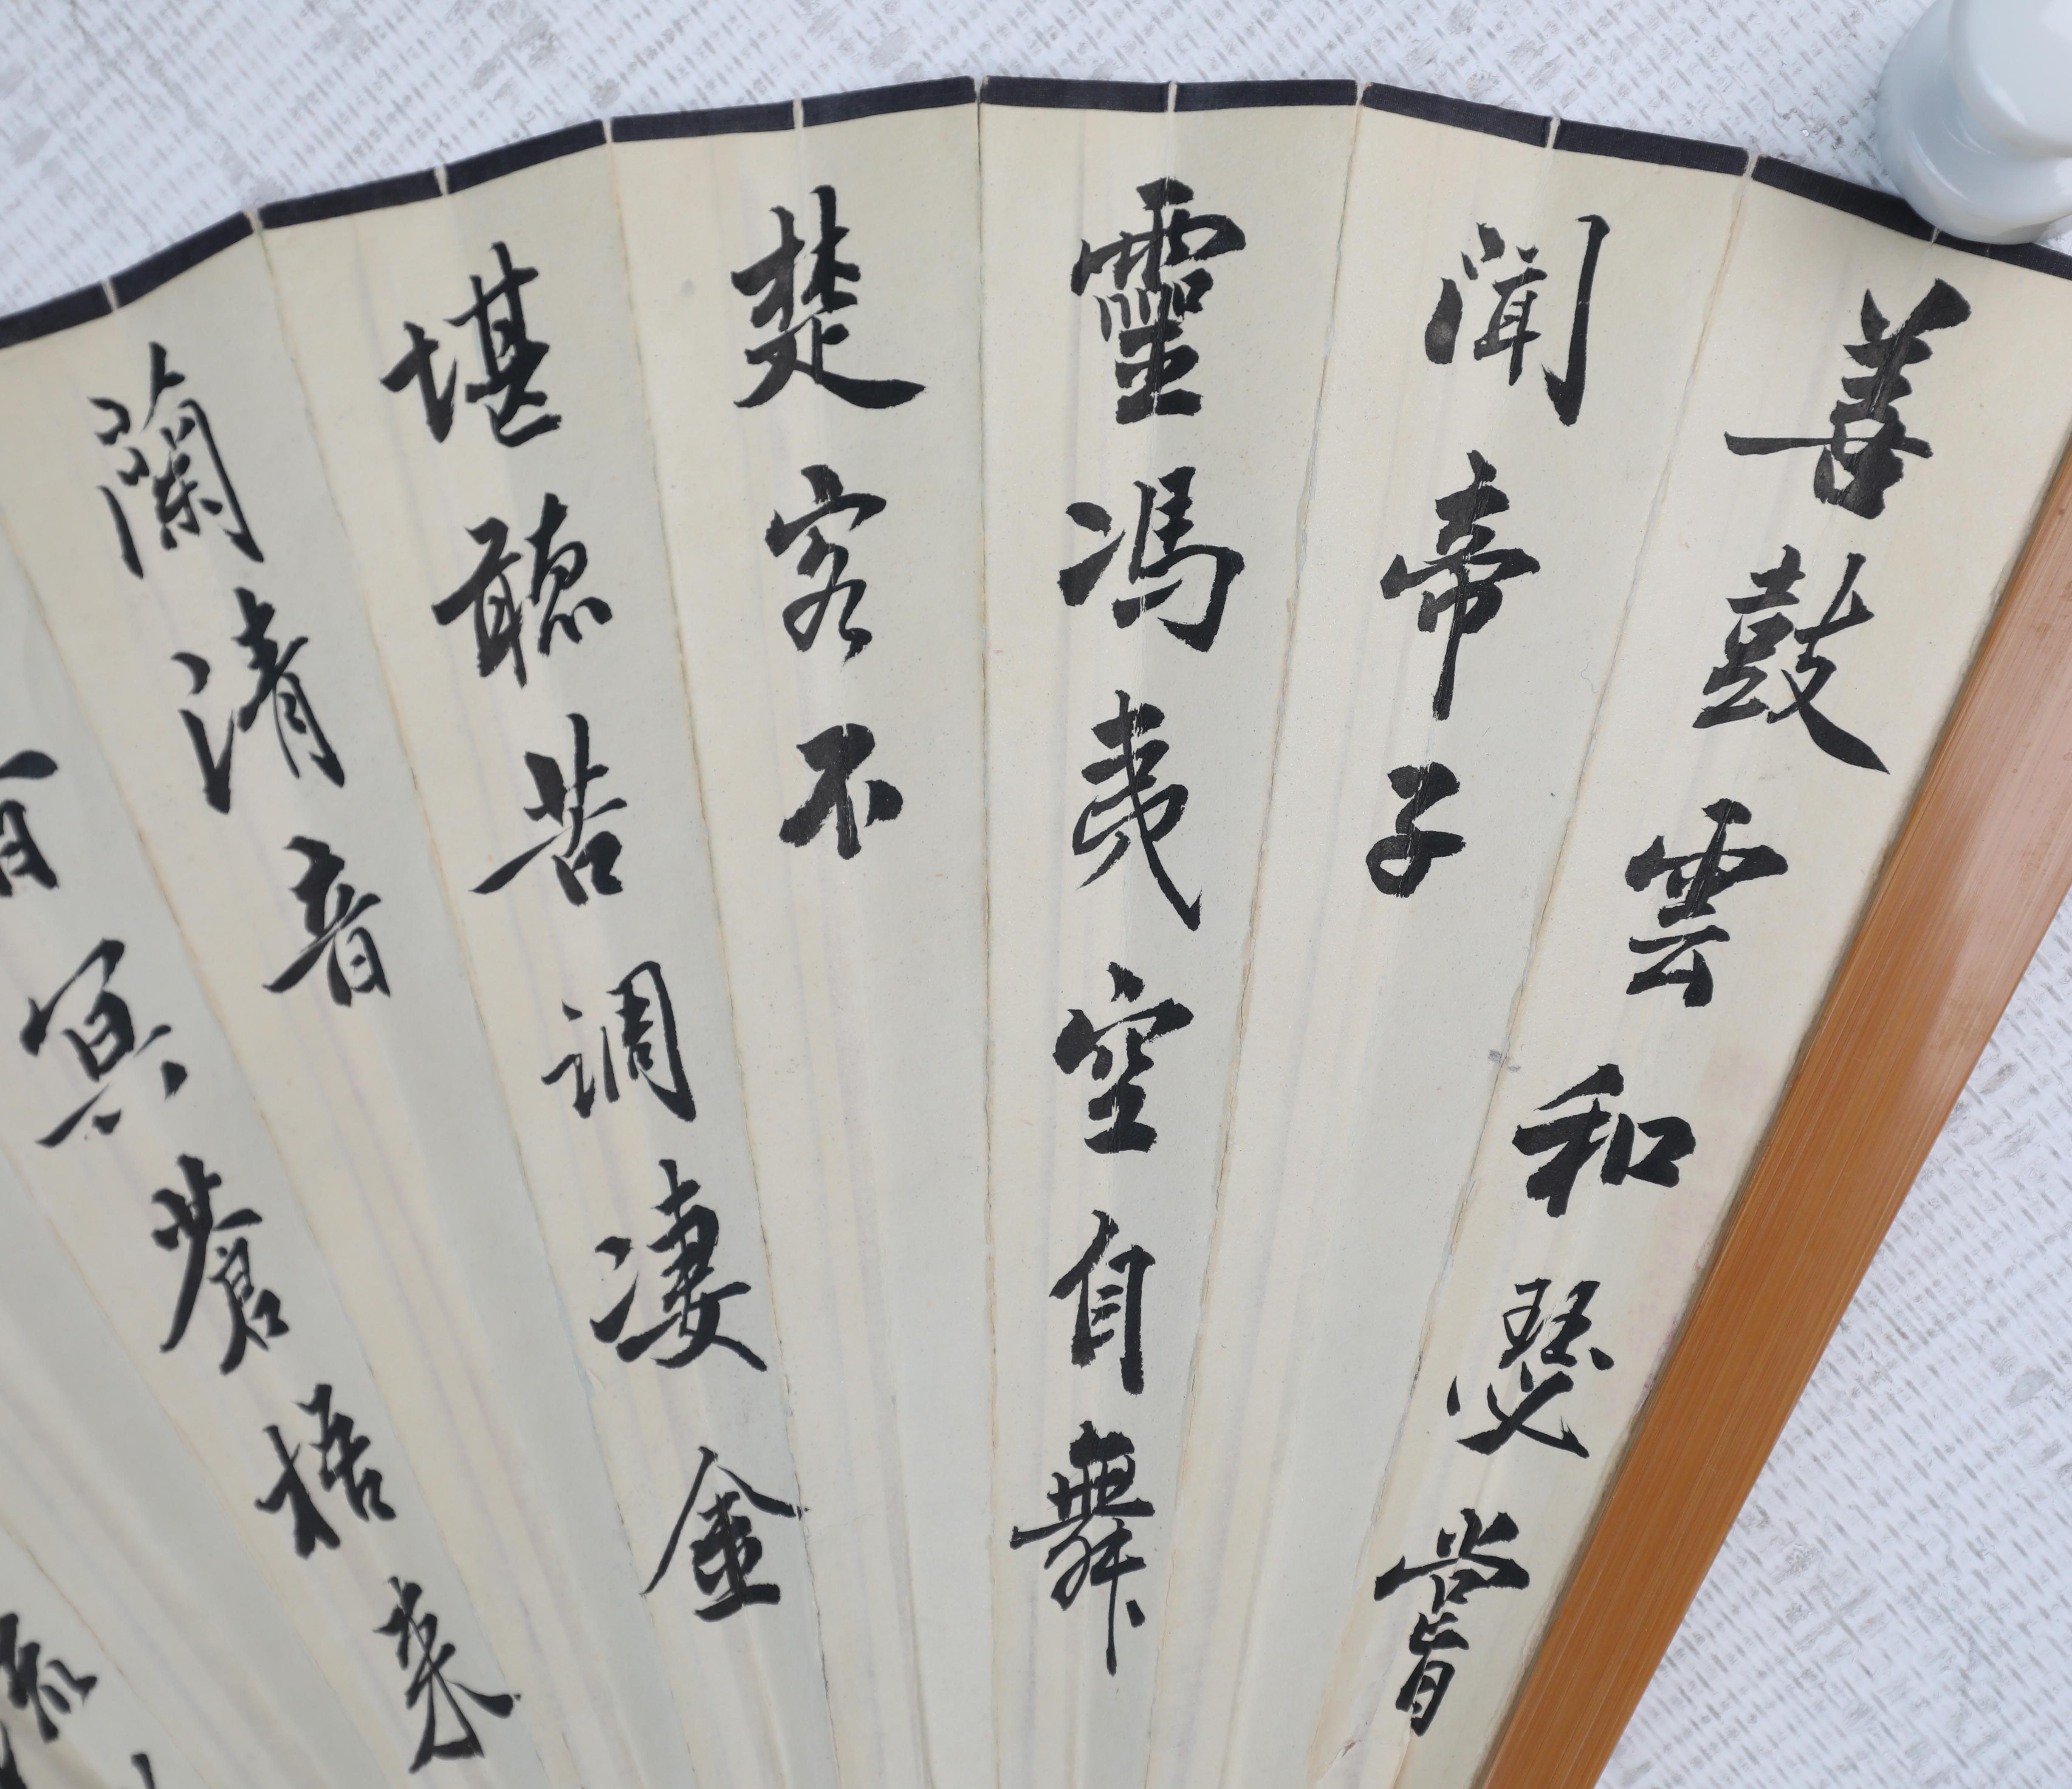 善鼓雲和瑟嘗
聞帝子
靈馮夷空自舞
楚客不
堪聽苦調凄金
蘭清音
冥蒼梧来